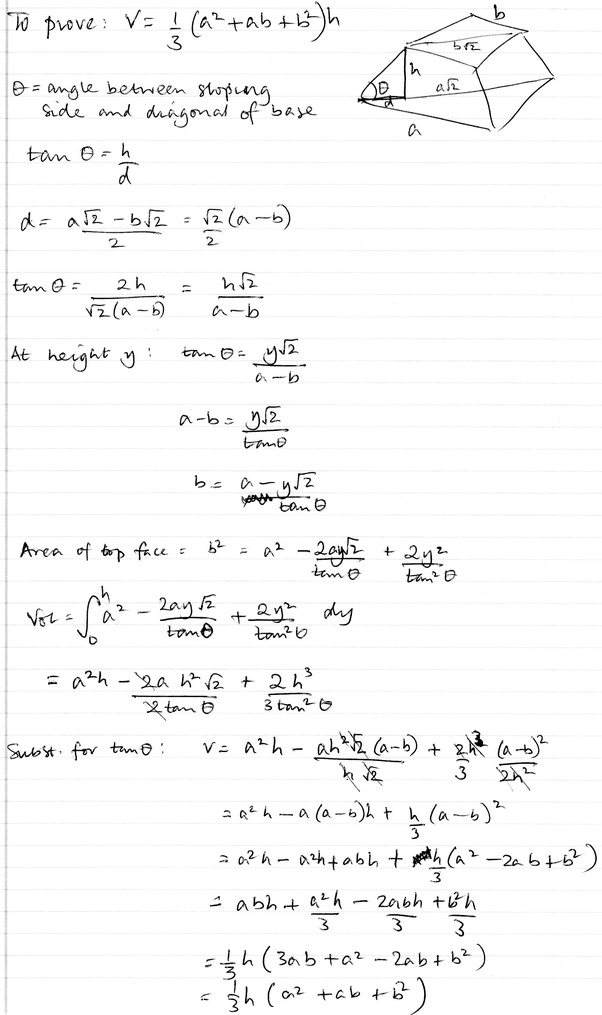 To prove: V = 1/3 (a² + ab + b²)h
b
b√2
h
θ
d
a√2
a
θ = angle between sloping
side and diagonal of base
tan θ = h/d
d = (a√2 - b√2)/2 = √2/2 (a-b)
tan θ = 2h/(√2(a-b)) = h√2/(a-b)
At height y: tan θ = y√2/(a-b)
a-b = y√2/tanθ
b = a - y√2/tan θ
Area of top face = b² = a² - 2ay√2/tan θ + 2y²/tan² θ
Vol = ∫₀ʰ a² - 2ay√2/tan θ + 2y²/tan² θ dy
= a²h - 2a h²√2/(2 tan θ) + 2h³/(3 tan² θ)
Subst. for tan θ: V = a²h - ah²√2 (a-b)/(h√2) + 2h³/3 (a-b)²/(2h²)
= a²h - a(a-b)h + h/3 (a-b)²
= a²h - a²h + abh + h/3 (a² - 2ab + b²)
= abh + a²h/3 - 2abh/3 + b²h/3
= 1/3 h (3ab + a² - 2ab + b²)
= 1/3 h (a² + ab + b²)